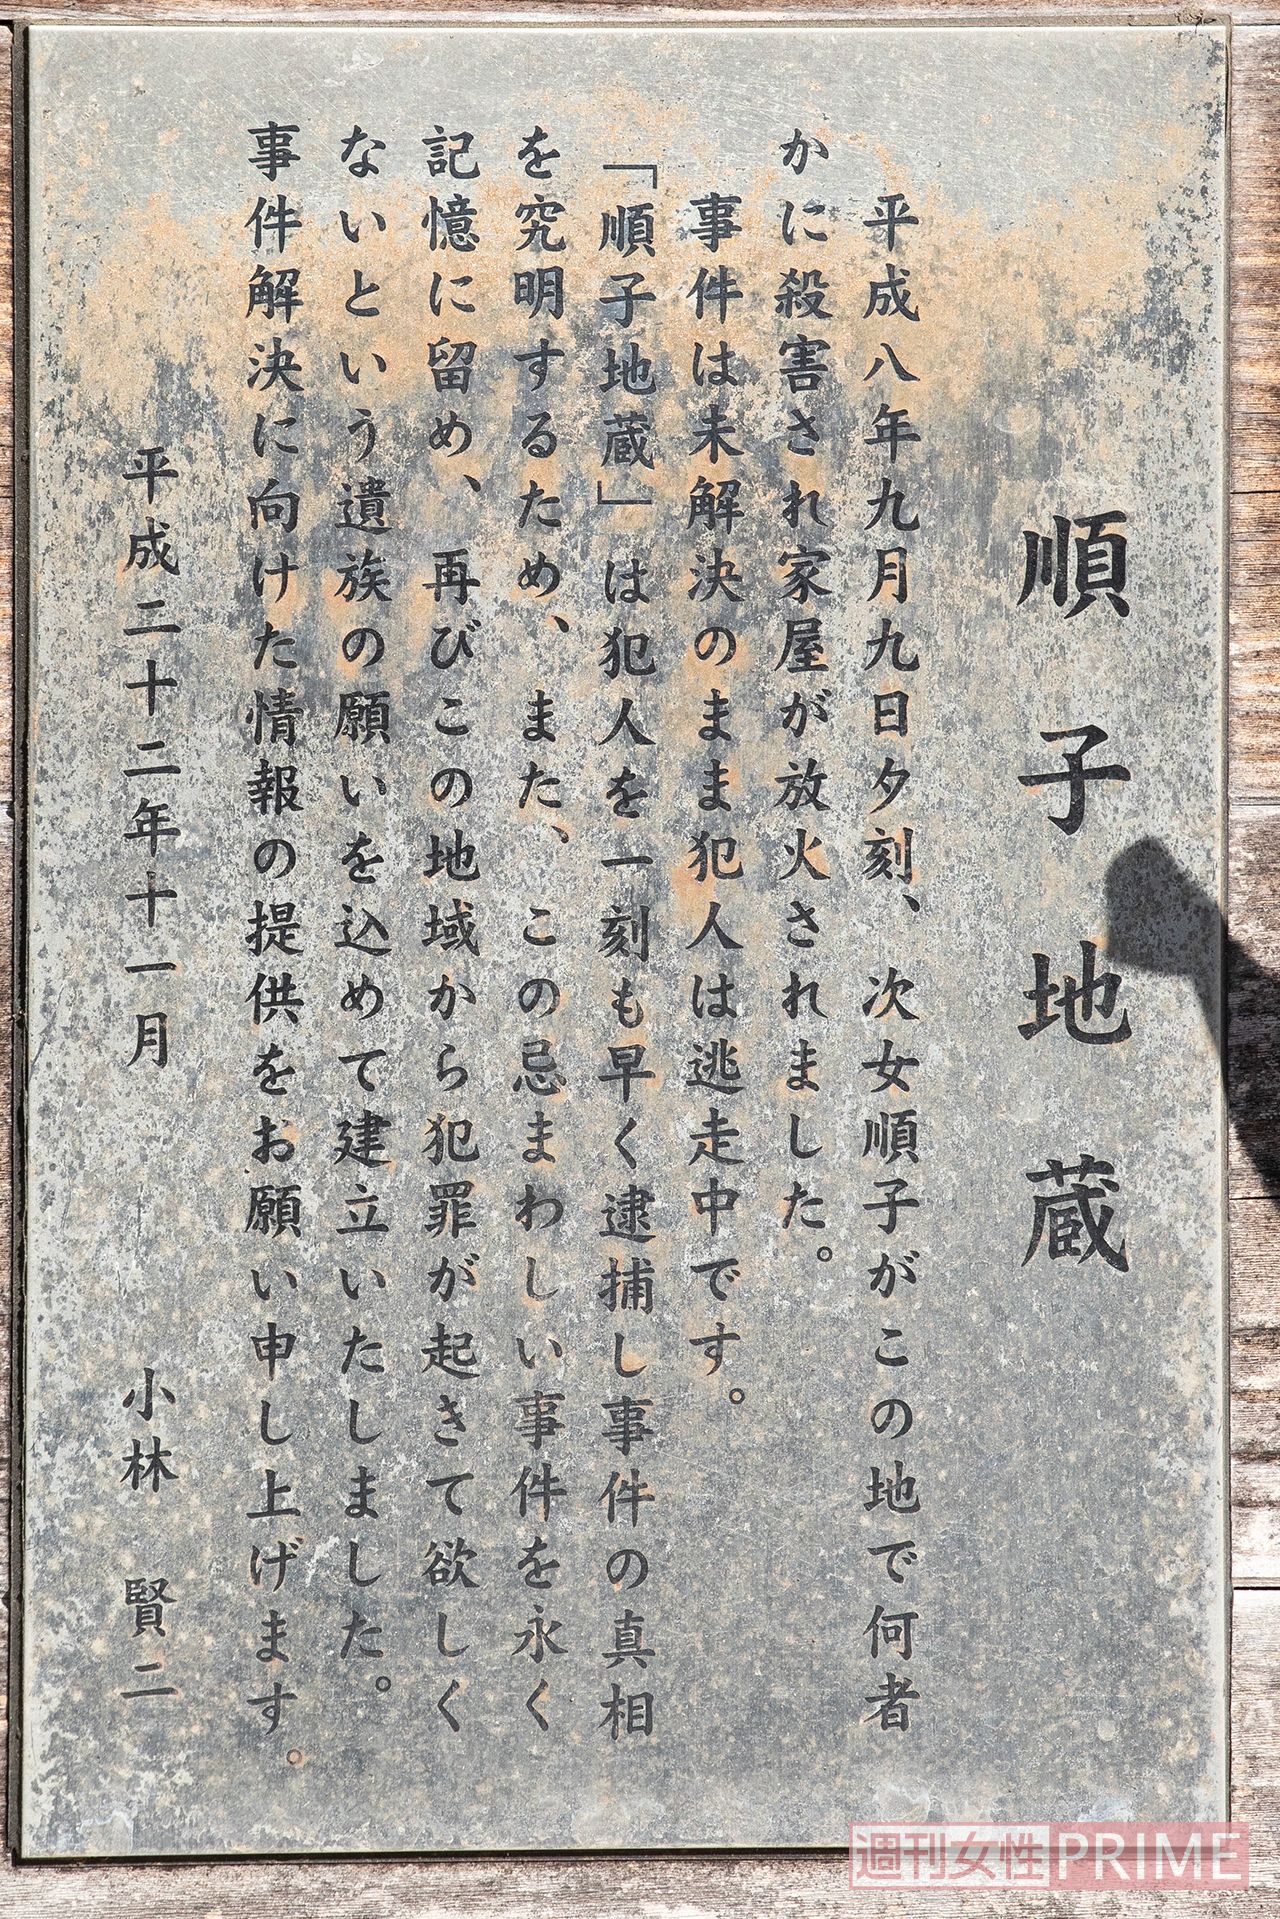 順子地蔵
平成八年九月九日夕刻、次女順子がこの地で何者
かに殺害され家屋が放火されました。
事件は未解決のまま犯人は逃走中です。
「順子地蔵」は犯人を一刻も早く逮捕し事件の真相
を究明するため、また、この忌まわしい事件を永く
記憶に留め、再びこの地域から犯罪が起きて欲しく
ないという遺族の願いを込めて建立いたしました。
事件解決に向けた情報の提供をお願い申し上げます。
平成二十二年十一月 小林 賢二
週刊女性PRIME